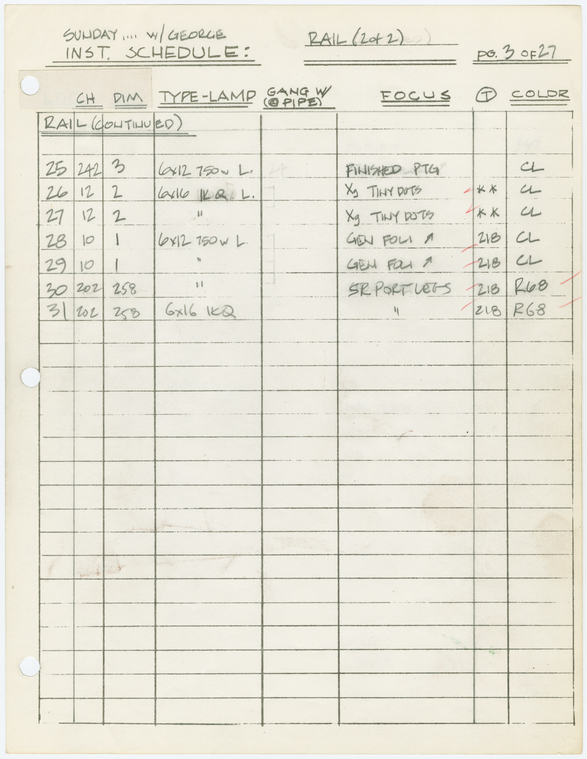 SUNDAY.... W/ GEORGE
RAIL (2 of 2)
INST. SCHEDULE:
PG. 3 OF 27
CH DIM TYPE-LAMP GANG W/ (@ PIPE) FOCUS T COLOR
RAIL (CONTINUED)
25 242 3 6x12 750w L. FINISHED PTG CL
26 12 2 6x16 1KQ L. Xg TINY DOTS ** CL
27 12 2 " Xg TINY DOTS ** CL
28 10 1 6x12 750w L GEN FOLI ↗ 218 CL
29 10 1 " GEN FOLI ↗ 218 CL
30 202 258 " SR PORT LEGS 218 R68
31 202 258 6x16 1KQ " 218 R68